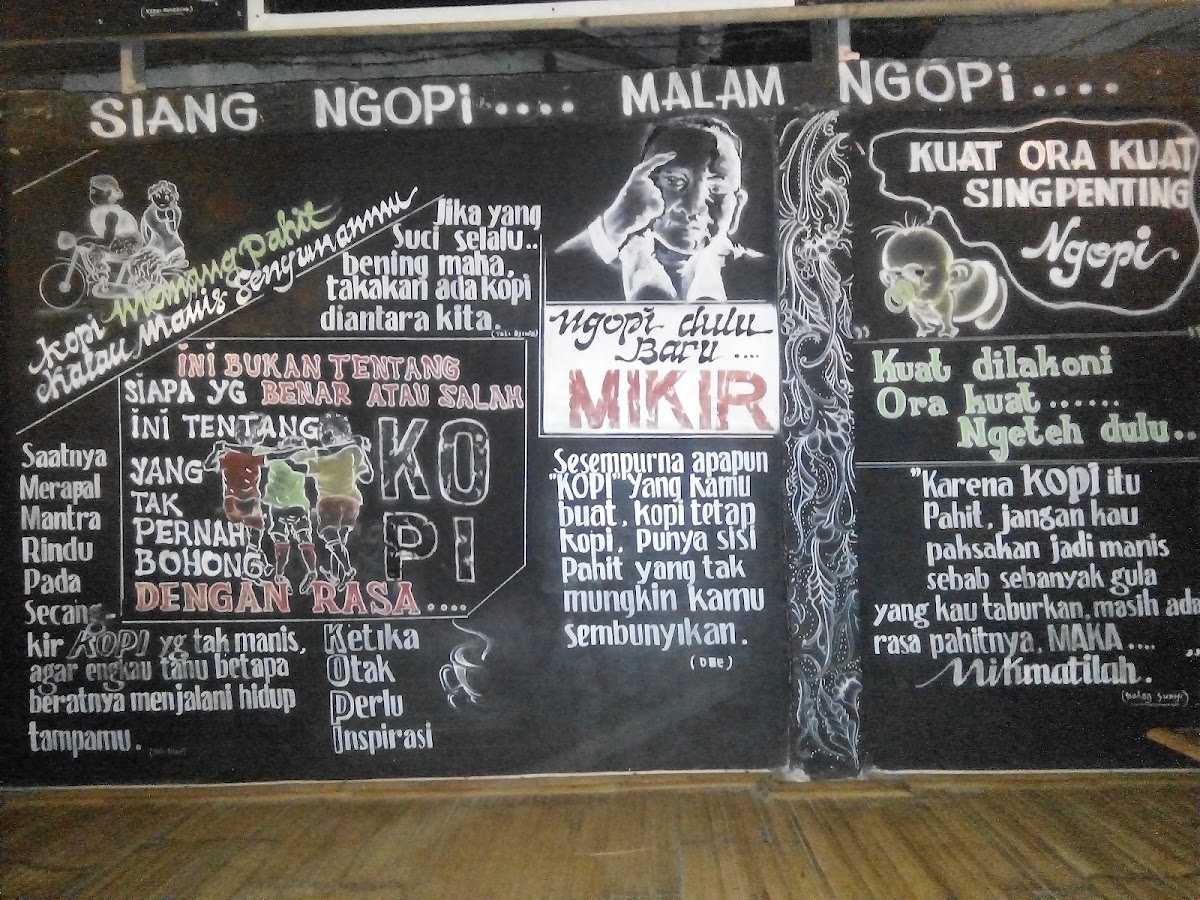 SIANG NGOPi.... MALAM NGOPi....
Kopi Memang Pahit
Kalau Manis Senyunammu
Jika yang
Suci selalu..
bening maha,
takakan ada kopi
diantara kita.
iNi BUKAN TENTANG
SiAPA YG BENAR ATAU SALAH
iNi TENTANG
YANG
TAK
PERNAH
BOHONG
KO
PI
DENGAN RASA....
Saatnya
Merapal
Mantra
Rindu
Pada
Secang-
kir KOPI yg tak manis,
agar engkau tahu betapa
beratnya menjalani hidup
tampamu.
Ketika
Otak
Perlu
Inspirasi
Ngopi dulu
Baru....
MIKIR
Sesempurna apapun
"KOPI" Yang kamu
buat, kopi tetap
kopi, Punya sisi
Pahit yang tak
mungkin kamu
sembunyikan.
KUAT ORA KUAT
SINGPENTING
Ngopi
Kuat dilakoni
Ora kuat......
Ngeteh dulu..
"Karena KOPI itu
Pahit, jangan kau
paksakan jadi manis
sebab sebanyak gula
yang kau taburkan, masih ada
rasa pahitnya, MAKA.... "
Nikmatilah.